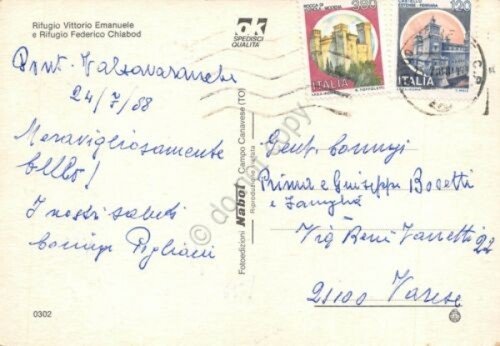 Rifugio Vittorio Emanuele
e Rifugio Federico Chiabod
SPEDISCI
QUALITÀ
Pont. Valsavaranche
24/7/88
Meravigliosamente
bello!
I nostri saluti
coniugi Pigliani
0302
Fotoedizioni Nabot Campo Canavese (TO)
Riproduzione vietata
ROCCA DI
380
ITALIA
CASTELLO
120
ITALIA
Gent. coniugi
Prima e Giuseppe Bosetti
e famiglia
Via Beni Zanetti 22
21100 Varese